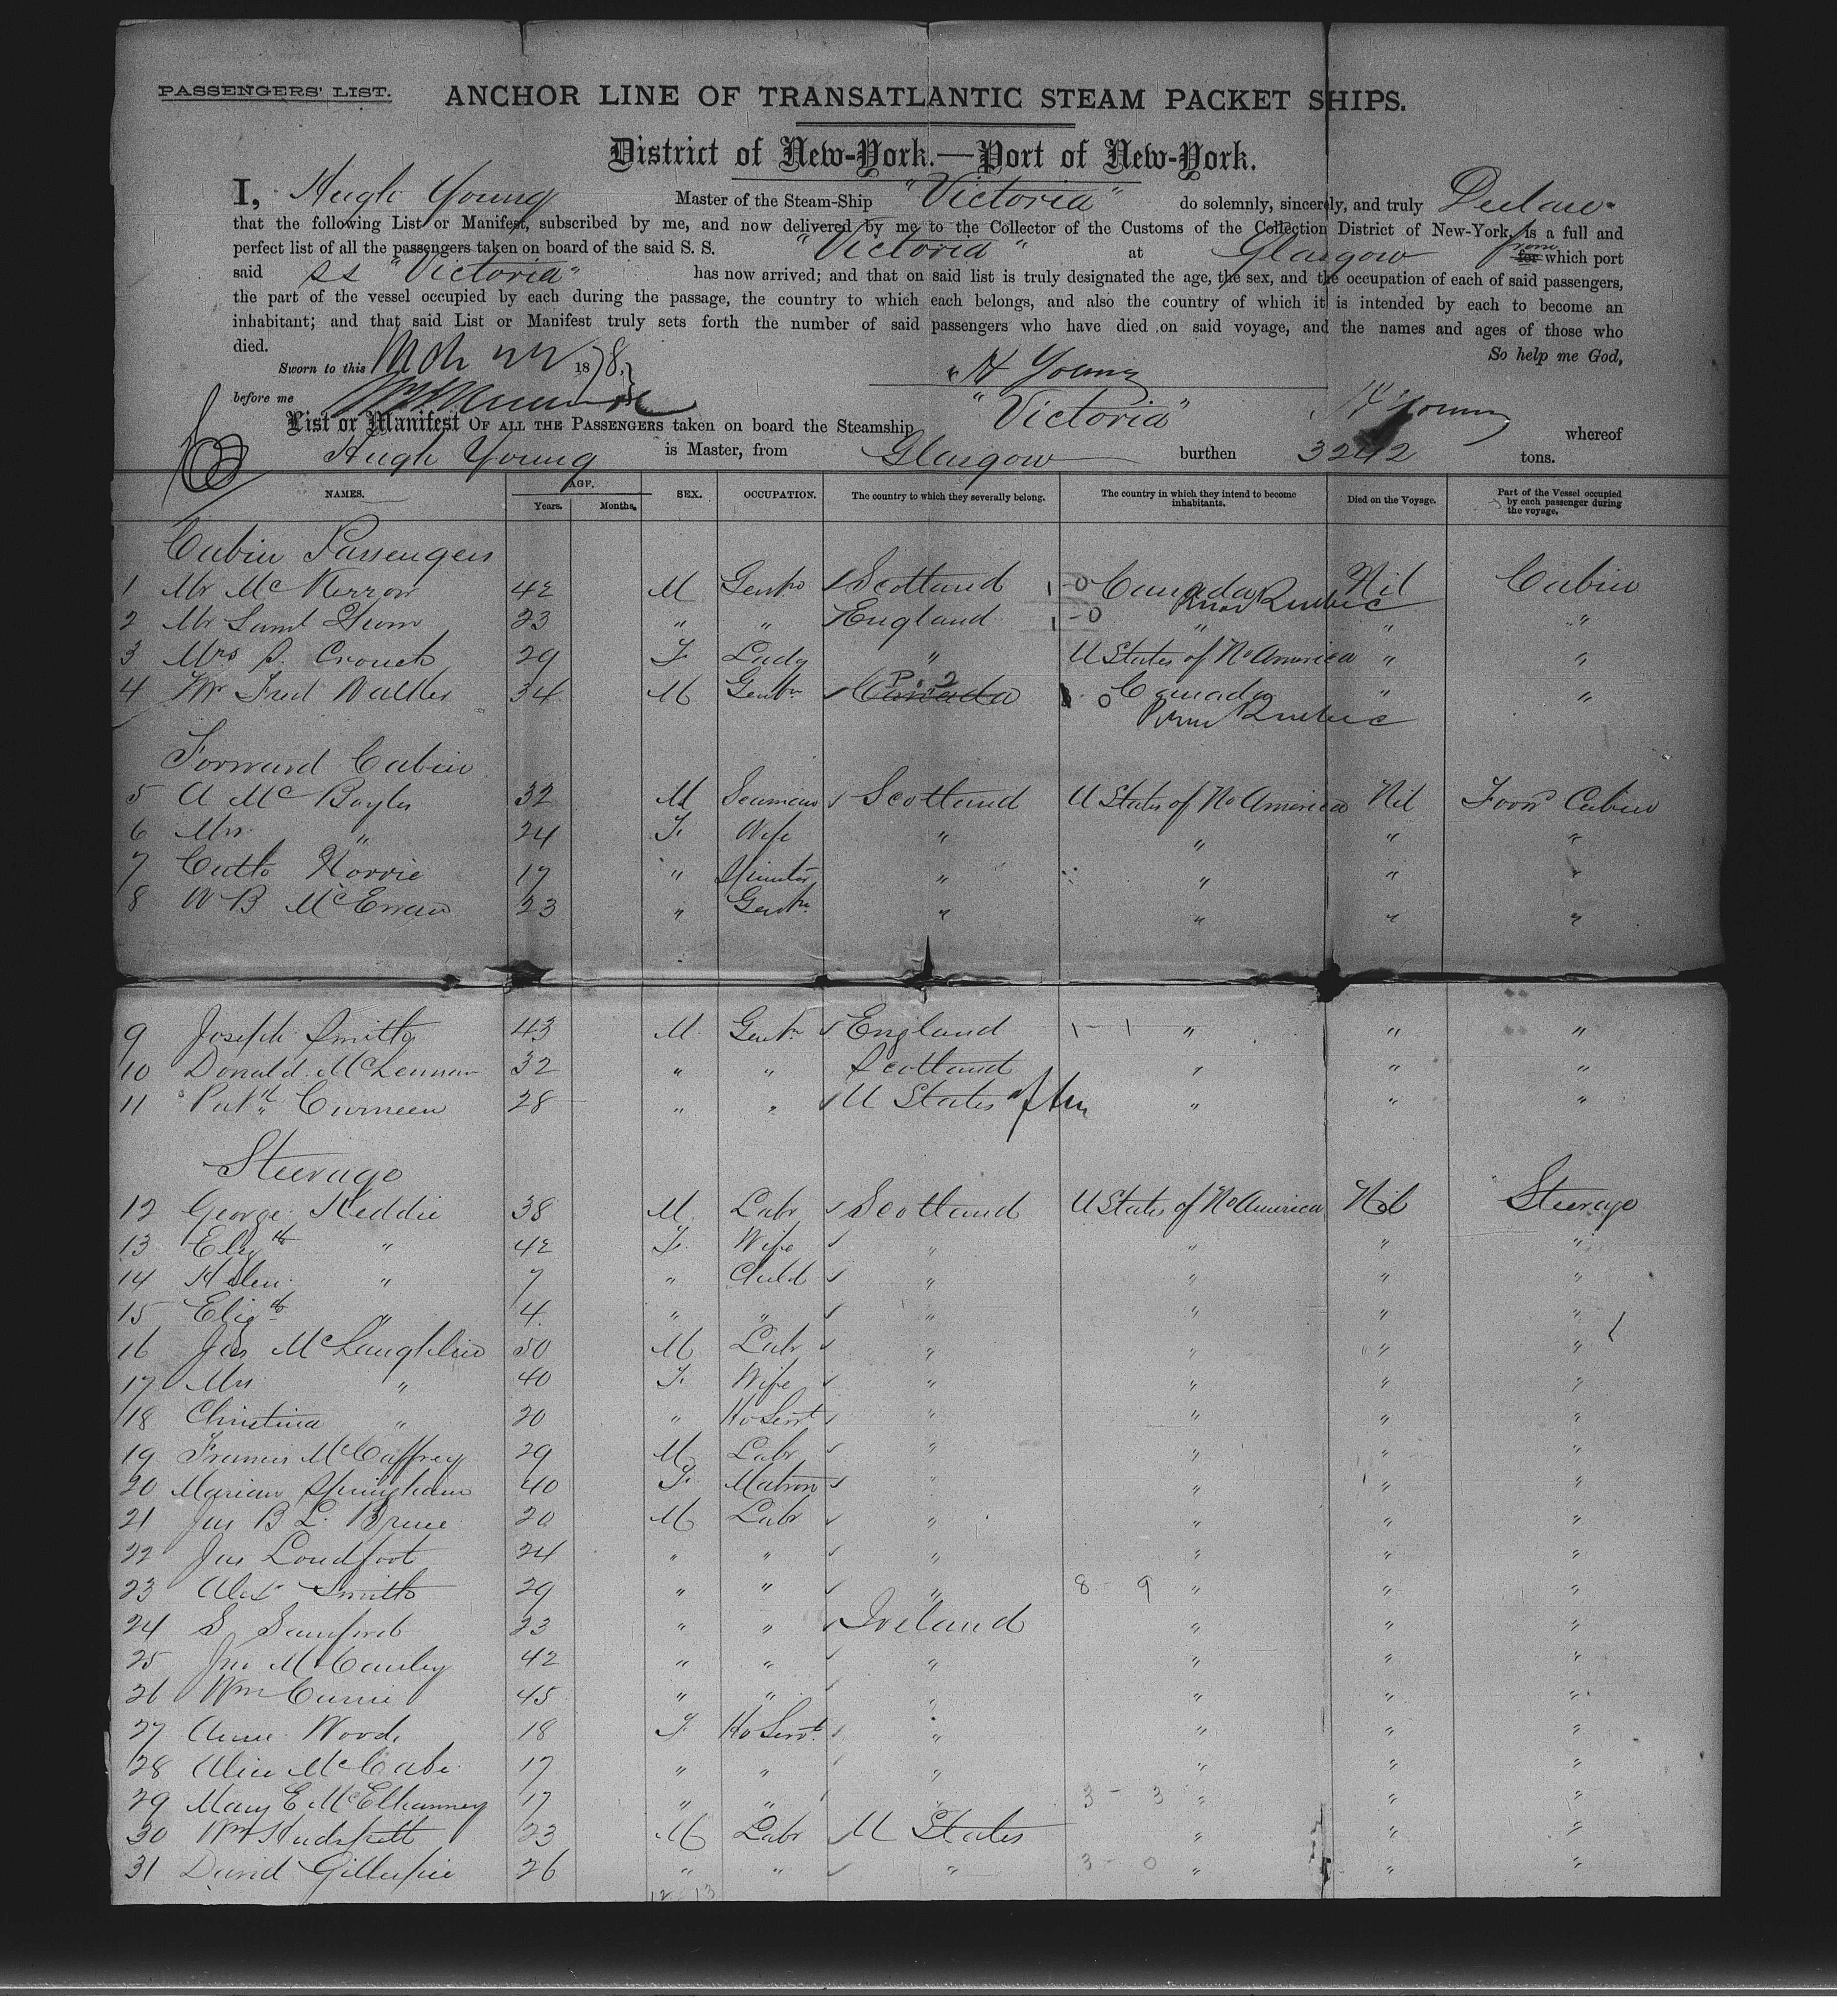 PASSENGERS' LIST.
ANCHOR LINE OF TRANSATLANTIC STEAM PACKET SHIPS.
District of New-York.—Port of New-York.
I, Hugh Young Master of the Steam-Ship "Victoria" do solemnly, sincerely, and truly Declare
that the following List or Manifest, subscribed by me, and now delivered by me to the Collector of the Customs of the Collection District of New-York, is a full and
perfect list of all the passengers taken on board of the said S. S. "Victoria" at Glasgow from for which port
said SS "Victoria" has now arrived; and that on said list is truly designated the age, the sex, and the occupation of each of said passengers,
the part of the vessel occupied by each during the passage, the country to which each belongs, and also the country of which it is intended by each to become an
inhabitant; and that said List or Manifest truly sets forth the number of said passengers who have died on said voyage, and the names and ages of those who
died. So help me God,
Sworn to this Mch 22 1878. H Young
before me
List or Manifest OF ALL THE PASSENGERS taken on board the Steamship "Victoria" H Young whereof
Hugh Young is Master, from Glasgow burthen 3242 tons.
NAMES. AGE. Years. Months. SEX. OCCUPATION. The country to which they severally belong. The country in which they intend to become inhabitants. Died on the Voyage. Part of the Vessel occupied by each passenger during the voyage.
Cabin Passengers
1 Mr McKerrow 42 M Gentn Scotland 1-0 Canada Nil Cabin
Quebec
2 Mr Saml 23 " " England 1-0 " " "
3 Mrs S. Crouch 29 F. Lady " U States of No America " "
4 Mr Fred Walker 34 M Gentn Canada 0 Canada " "
Quebec
Forward Cabin
5 A McBoyle 32 M Seaman Scotland U States of No America Nil Forwd Cabin
6 Mrs " 24 F. Wife " " " "
7 Norrie 17 " " " " "
8 W B McEwan 23 " Gentn " " " "
9 Joseph Smith 43 M Gentn England 1-1 " " "
10 Donald McLennan 32 " " Scotland " " "
11 Patk Curneen 28 " " U States of Am " " "
Steerage
12 George Keddie 38 M Labr Scotland U States of No America Nil Steerage
13 Elizth " 42 F. Wife " " " "
14 Helen " 7 " Child " " " "
15 Elizth " 4 " " " " " "
16 Jas McLaughlin 50 M Labr " " " "
17 Mrs " 40 F. Wife " " " "
18 Christina " 20 " Ho Servt " " " "
19 Francis McCaffrey 29 M Labr " " " "
20 Marian 40 F. Matron " " " "
21 Jas B L. Bruce 20 M Labr " " " "
22 Jas Loudfoot 24 " " " " " "
23 Alex Smith 29 " " " 8-9 " " "
24 S Samford 23 " " Ireland " " "
25 Jno McCauley 42 " " " " " "
26 Wm Currie 45 " " " " " "
27 Annie Wood 18 F. Ho Servt. " " " "
28 Alice McCabe 17 " " " " " "
29 Mary E McElhanney 17 " " " 3-3 " " "
30 Wm 23 M Labr U States " " "
31 David Gillespie 26 " " " 3-0 " " "
12 13